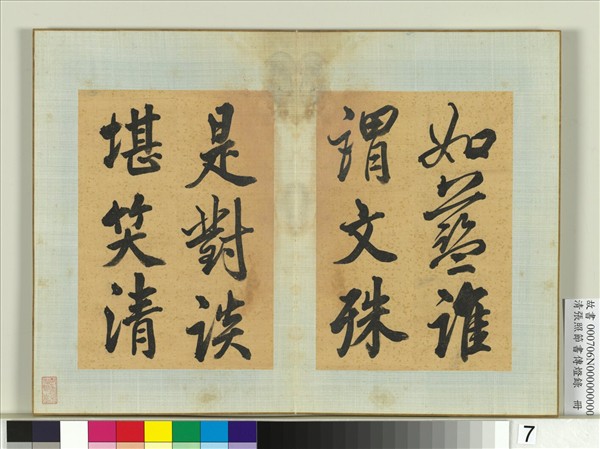 如藍誰
謂文殊
是對談
堪笑清
故書 000706N000000000
清張照節書傳燈錄 冊
7